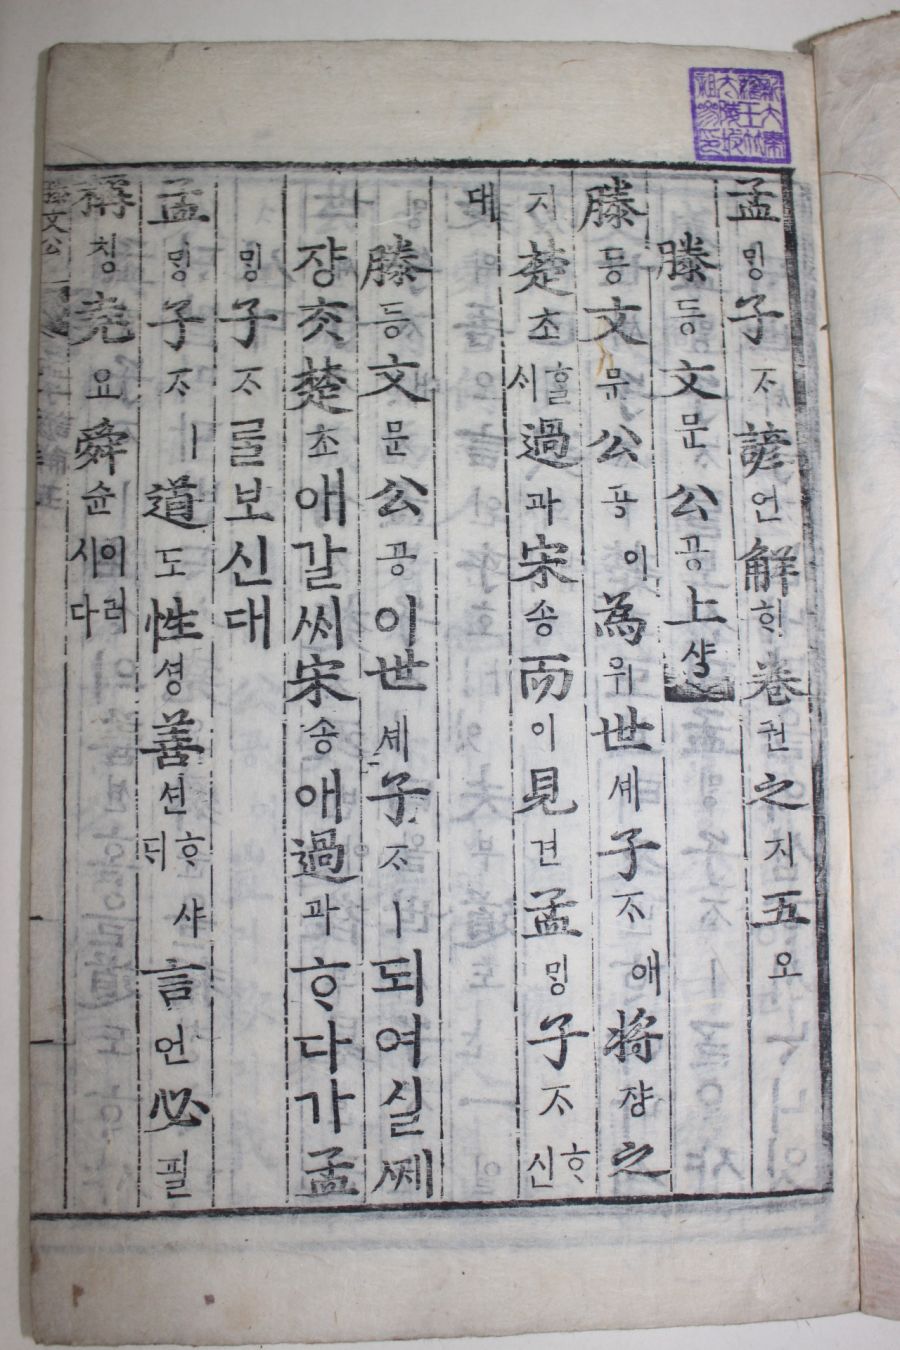 孟ᄆᆡᆼ子ᄌᆞ諺언解ᄒᆡ卷권之지五오
滕등文문公공上샹
滕등文문公공이為위世셰子ᄌᆞ애將쟝之
지楚초ᄒᆞᆯ시過과宋송而이見견孟ᄆᆡᆼ子ᄌᆞᄒᆞ신
대
滕등文문公공이世셰子ᄌᆞㅣ되여실쩨
쟝ᄎᆞᆺ楚초애갈씨宋송애過과ᄒᆞ다가孟
ᄆᆡᆼ子ᄌᆞ를보신대
孟ᄆᆡᆼ子ᄌᆞㅣ道도性셩善션ᄒᆞ샤ᄃᆡ言언必필
稱칭堯요舜슌이러시다
文公